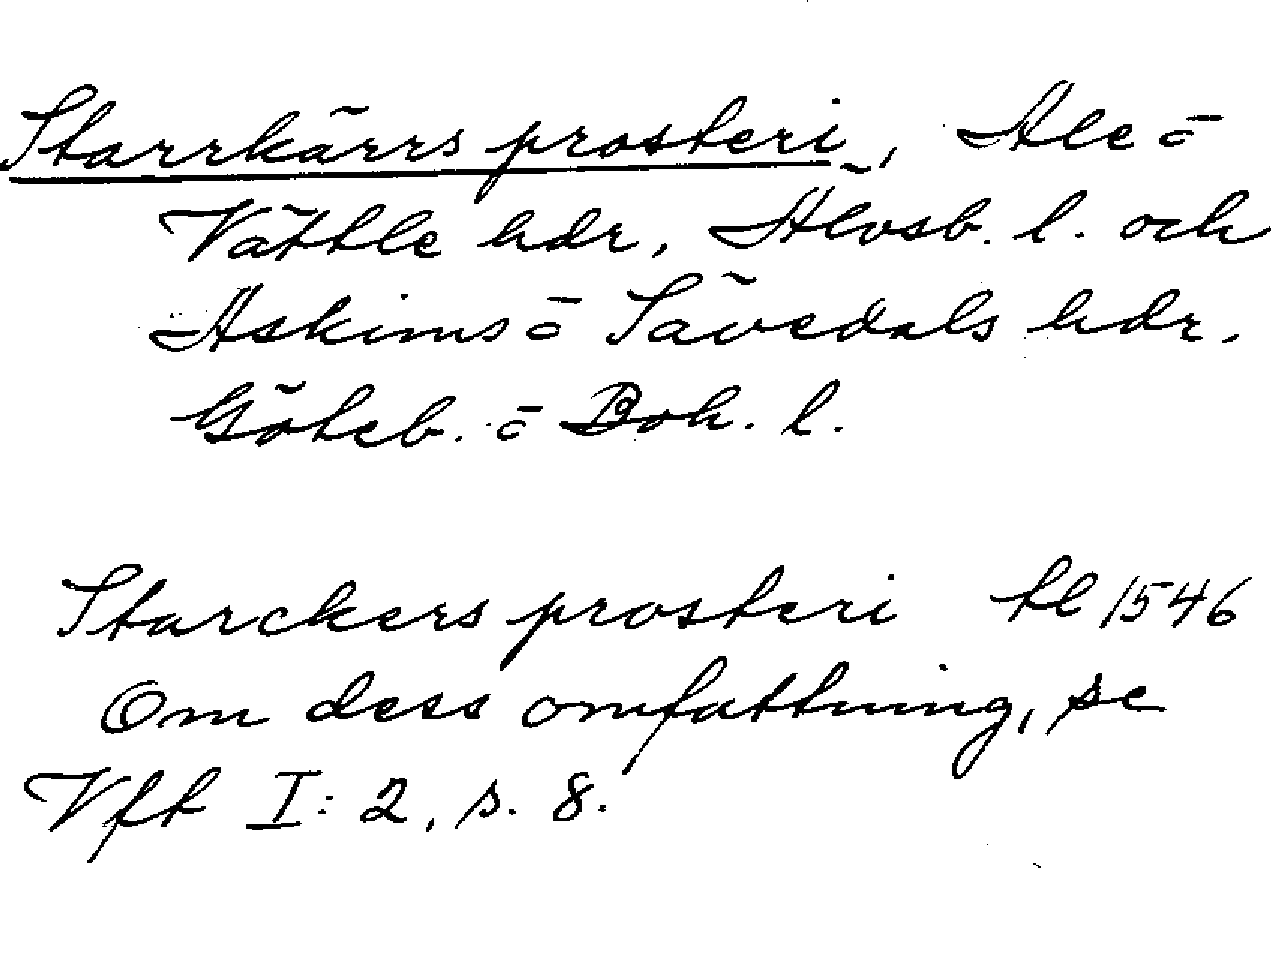 Starrkärrs prosteri, Ale o
Vättle hdr, Älvsb. l. och
Askims o Sävedals hdr.
Göteb. o Boh. l.
Starckers prosteri tl 1546
Om dess omfattning, se
Vft I: 2, s. 8.